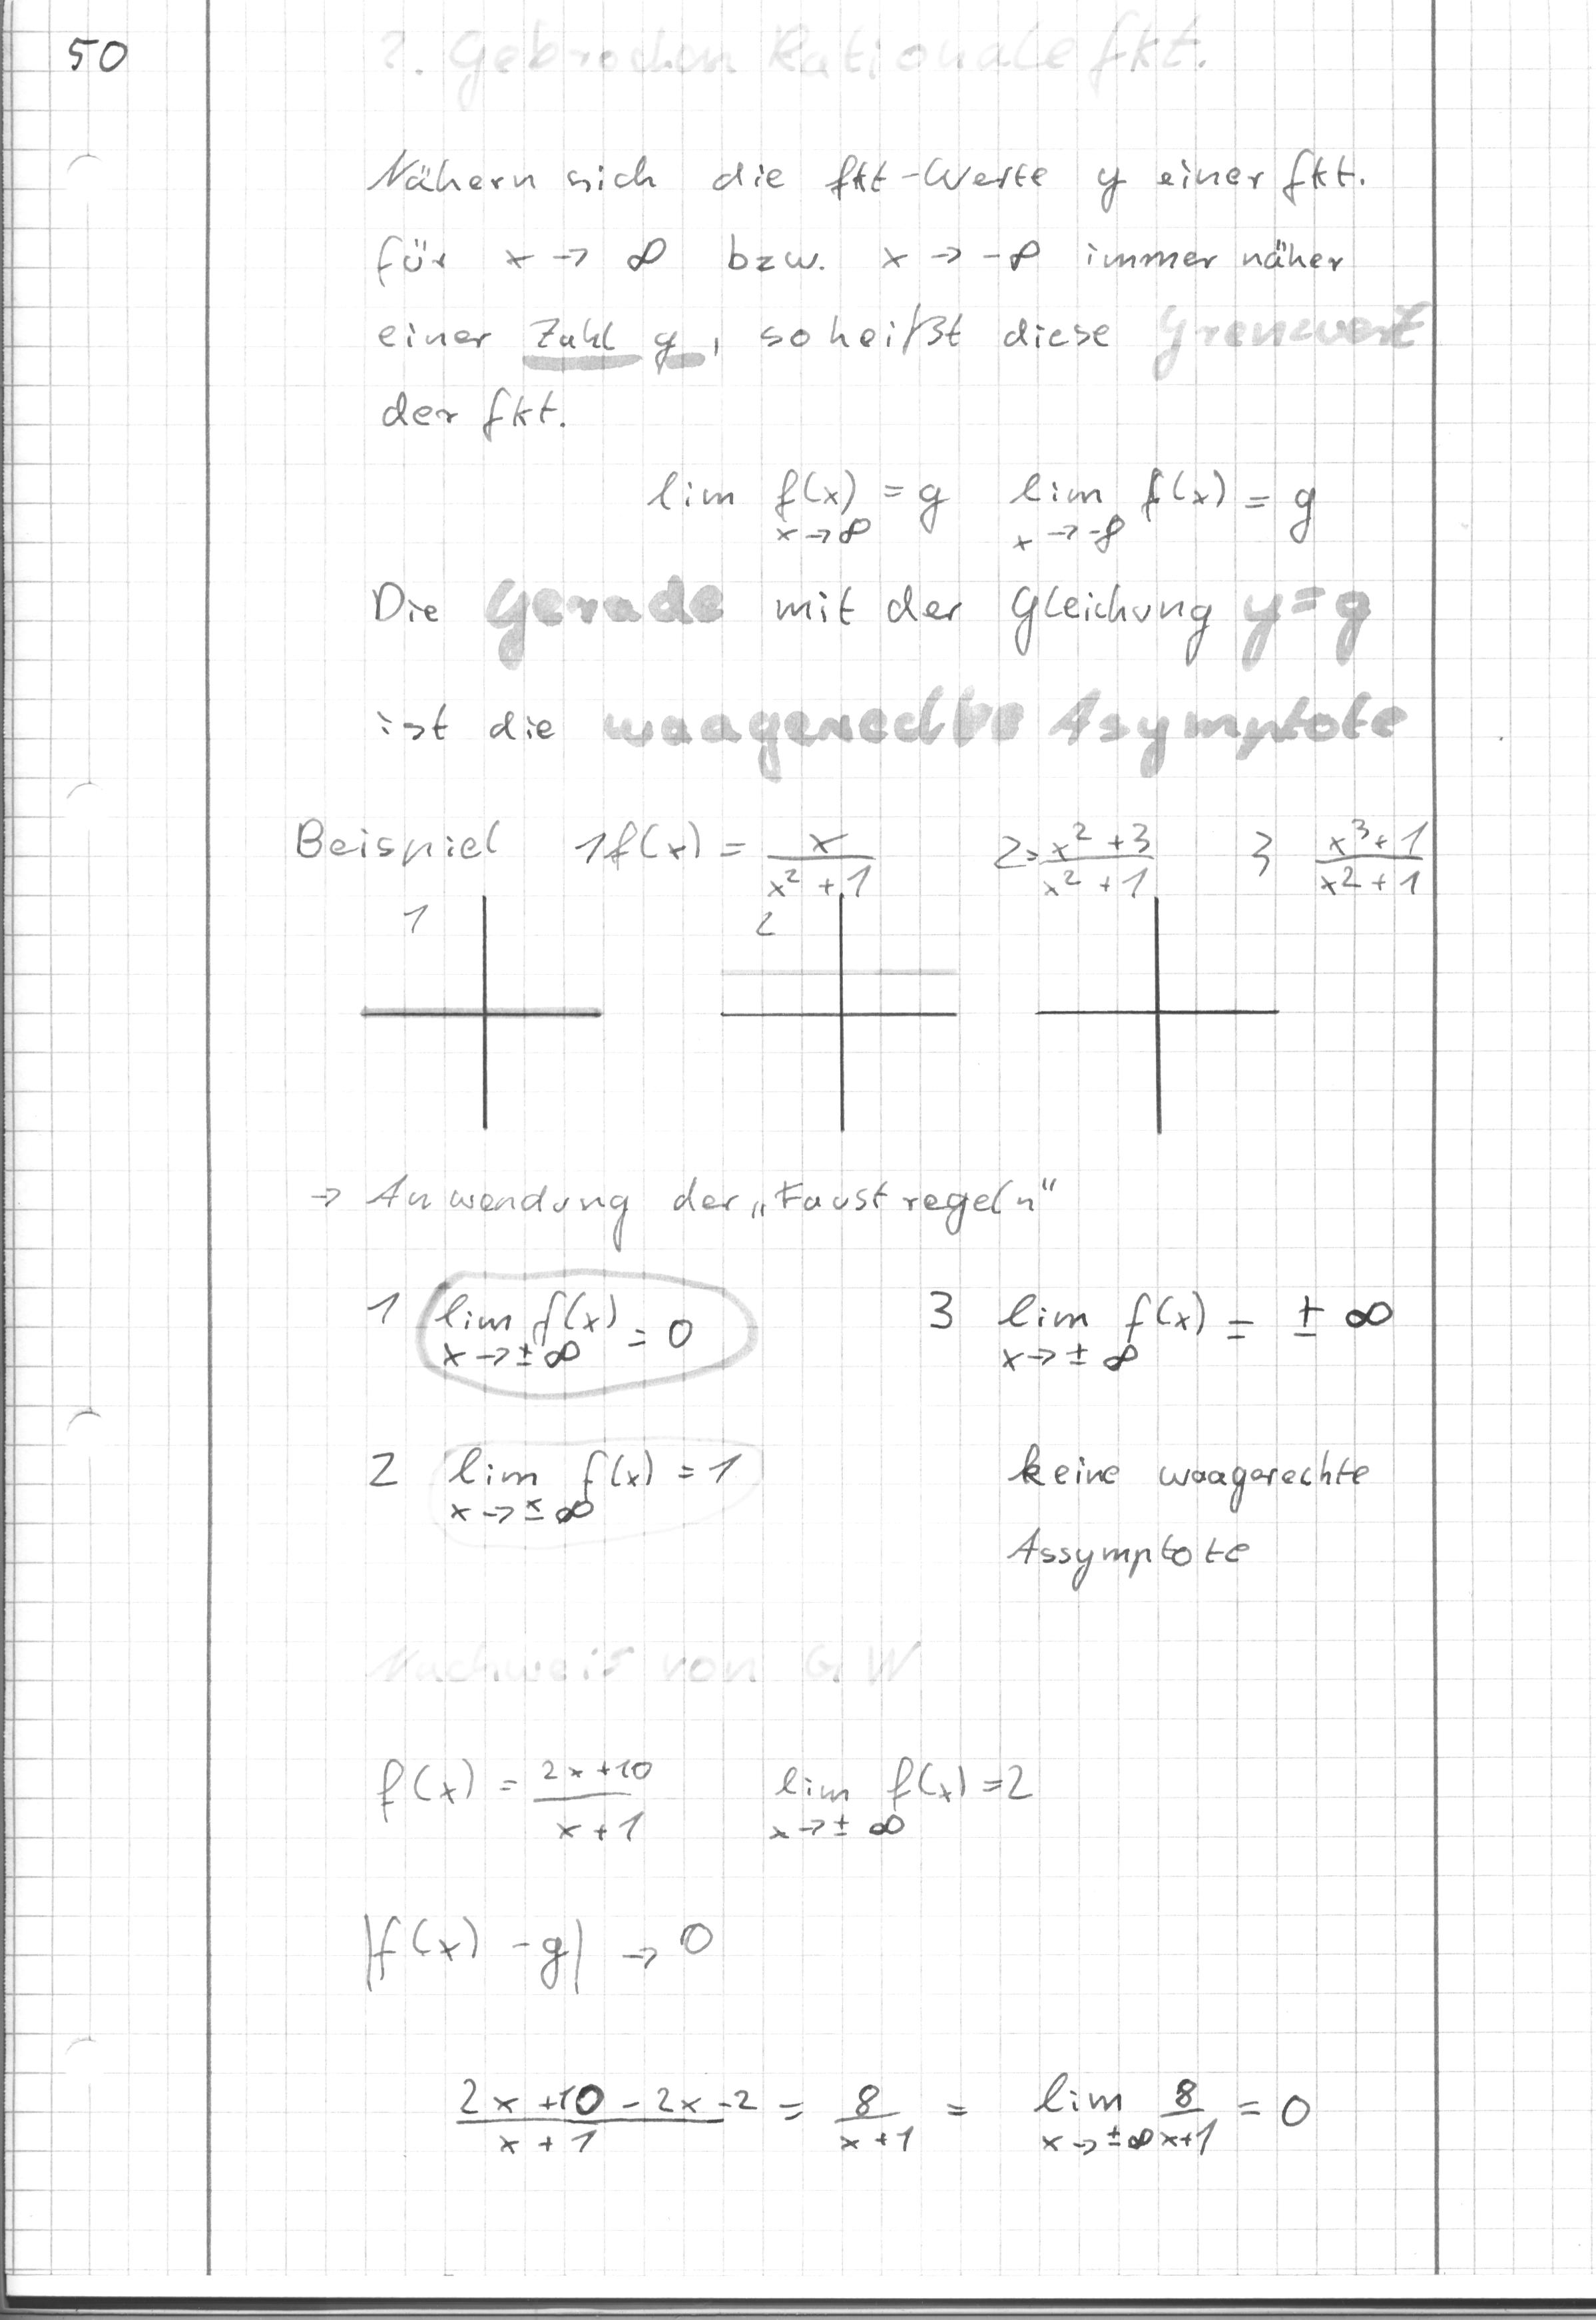 50
2. Gebrochen Rationale fkt.
Nähern sich die fkt-Werte y einer fkt.
für x → ∞ bzw. x → -∞ immer näher
einer Zahl g, so heißt diese Grenzwert
der fkt.
lim f(x) = g lim f(x) = g
x→∞ x→-∞
Die Gerade mit der Gleichung y=g
ist die waagerechte Asymptote
Beispiel 1 f(x) = x/(x²+1) 2 (x²+3)/(x²+1) 3 (x³+1)/(x²+1)
1 2
→ Anwendung der „Faustregeln“
1 lim f(x) = 0 3 lim f(x) = ± ∞
x→±∞ x→±∞
2 lim f(x) = 1 keine waagerechte
x→±∞
Assymptote
Nachweis von GW
f(x) = (2x+10)/(x+1) lim f(x) = 2
x→±∞
|f(x) - g| → 0
(2x+10-2x-2)/(x+1) = 8/(x+1) = lim 8/(x+1) = 0
x→±∞